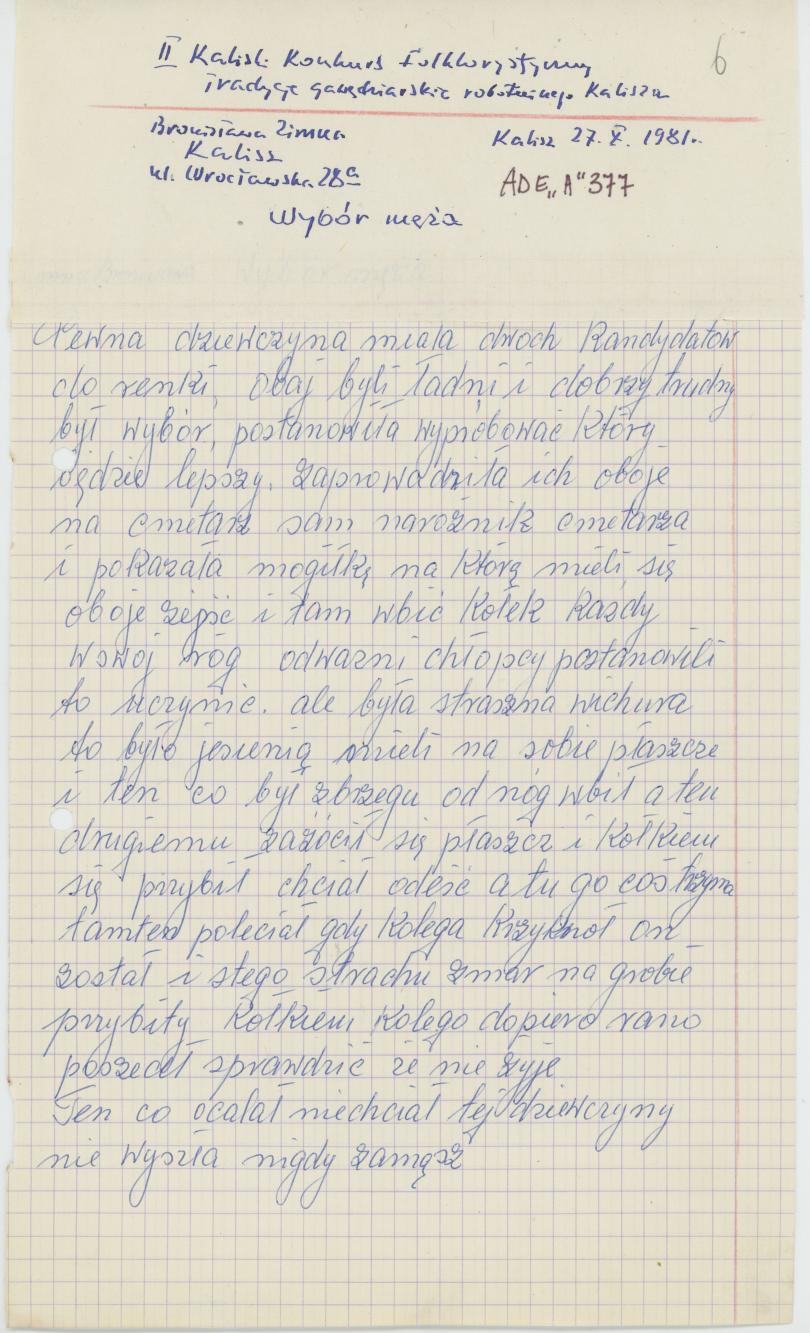 6
II Kaliski Konkurs Folklorystyczny
Tradycje gawędziarskie robotniczego Kalisza
Bronisława Zimna
Kalisz
ul. Wrocławska 28a
Kalisz 27. X. 1981r.
ADE „A" 377
Wybór męża
Pewna dziewczyna miała dwoch Kandydatow
do renki, obaj byli ładni i dobrzy trudny
był wybór, postanowiła wypróbować Który
będzie lepszy. zaprowadziła ich oboje
na cmetarz sam narożnik cmetarza
i pokazała mogiłkę na Którą mieli się
oboje zejść i tam wbić Kołek Każdy
wswoj róg odwazni chłopcy postanowili
to uczynić. ale była straszna wichura
to było jesienią mieli na sobie płaszcze
i ten co był zbrzegu od nóg wbił a ten
drugiemu zażócił się płaszcz i Kołkiem
się przybił chciał odeść a tu go coś trzyma
tamten poleciał gdy Kolega Krzyknoł on
został i stego strachu zmar na grobie
przybity Kołkiem Kolego dopiero rano
poszedł sprawdzić że nie żyje
Ten co ocalał niechciał tej dziewczyny
nie wyszła nigdy zamąsz